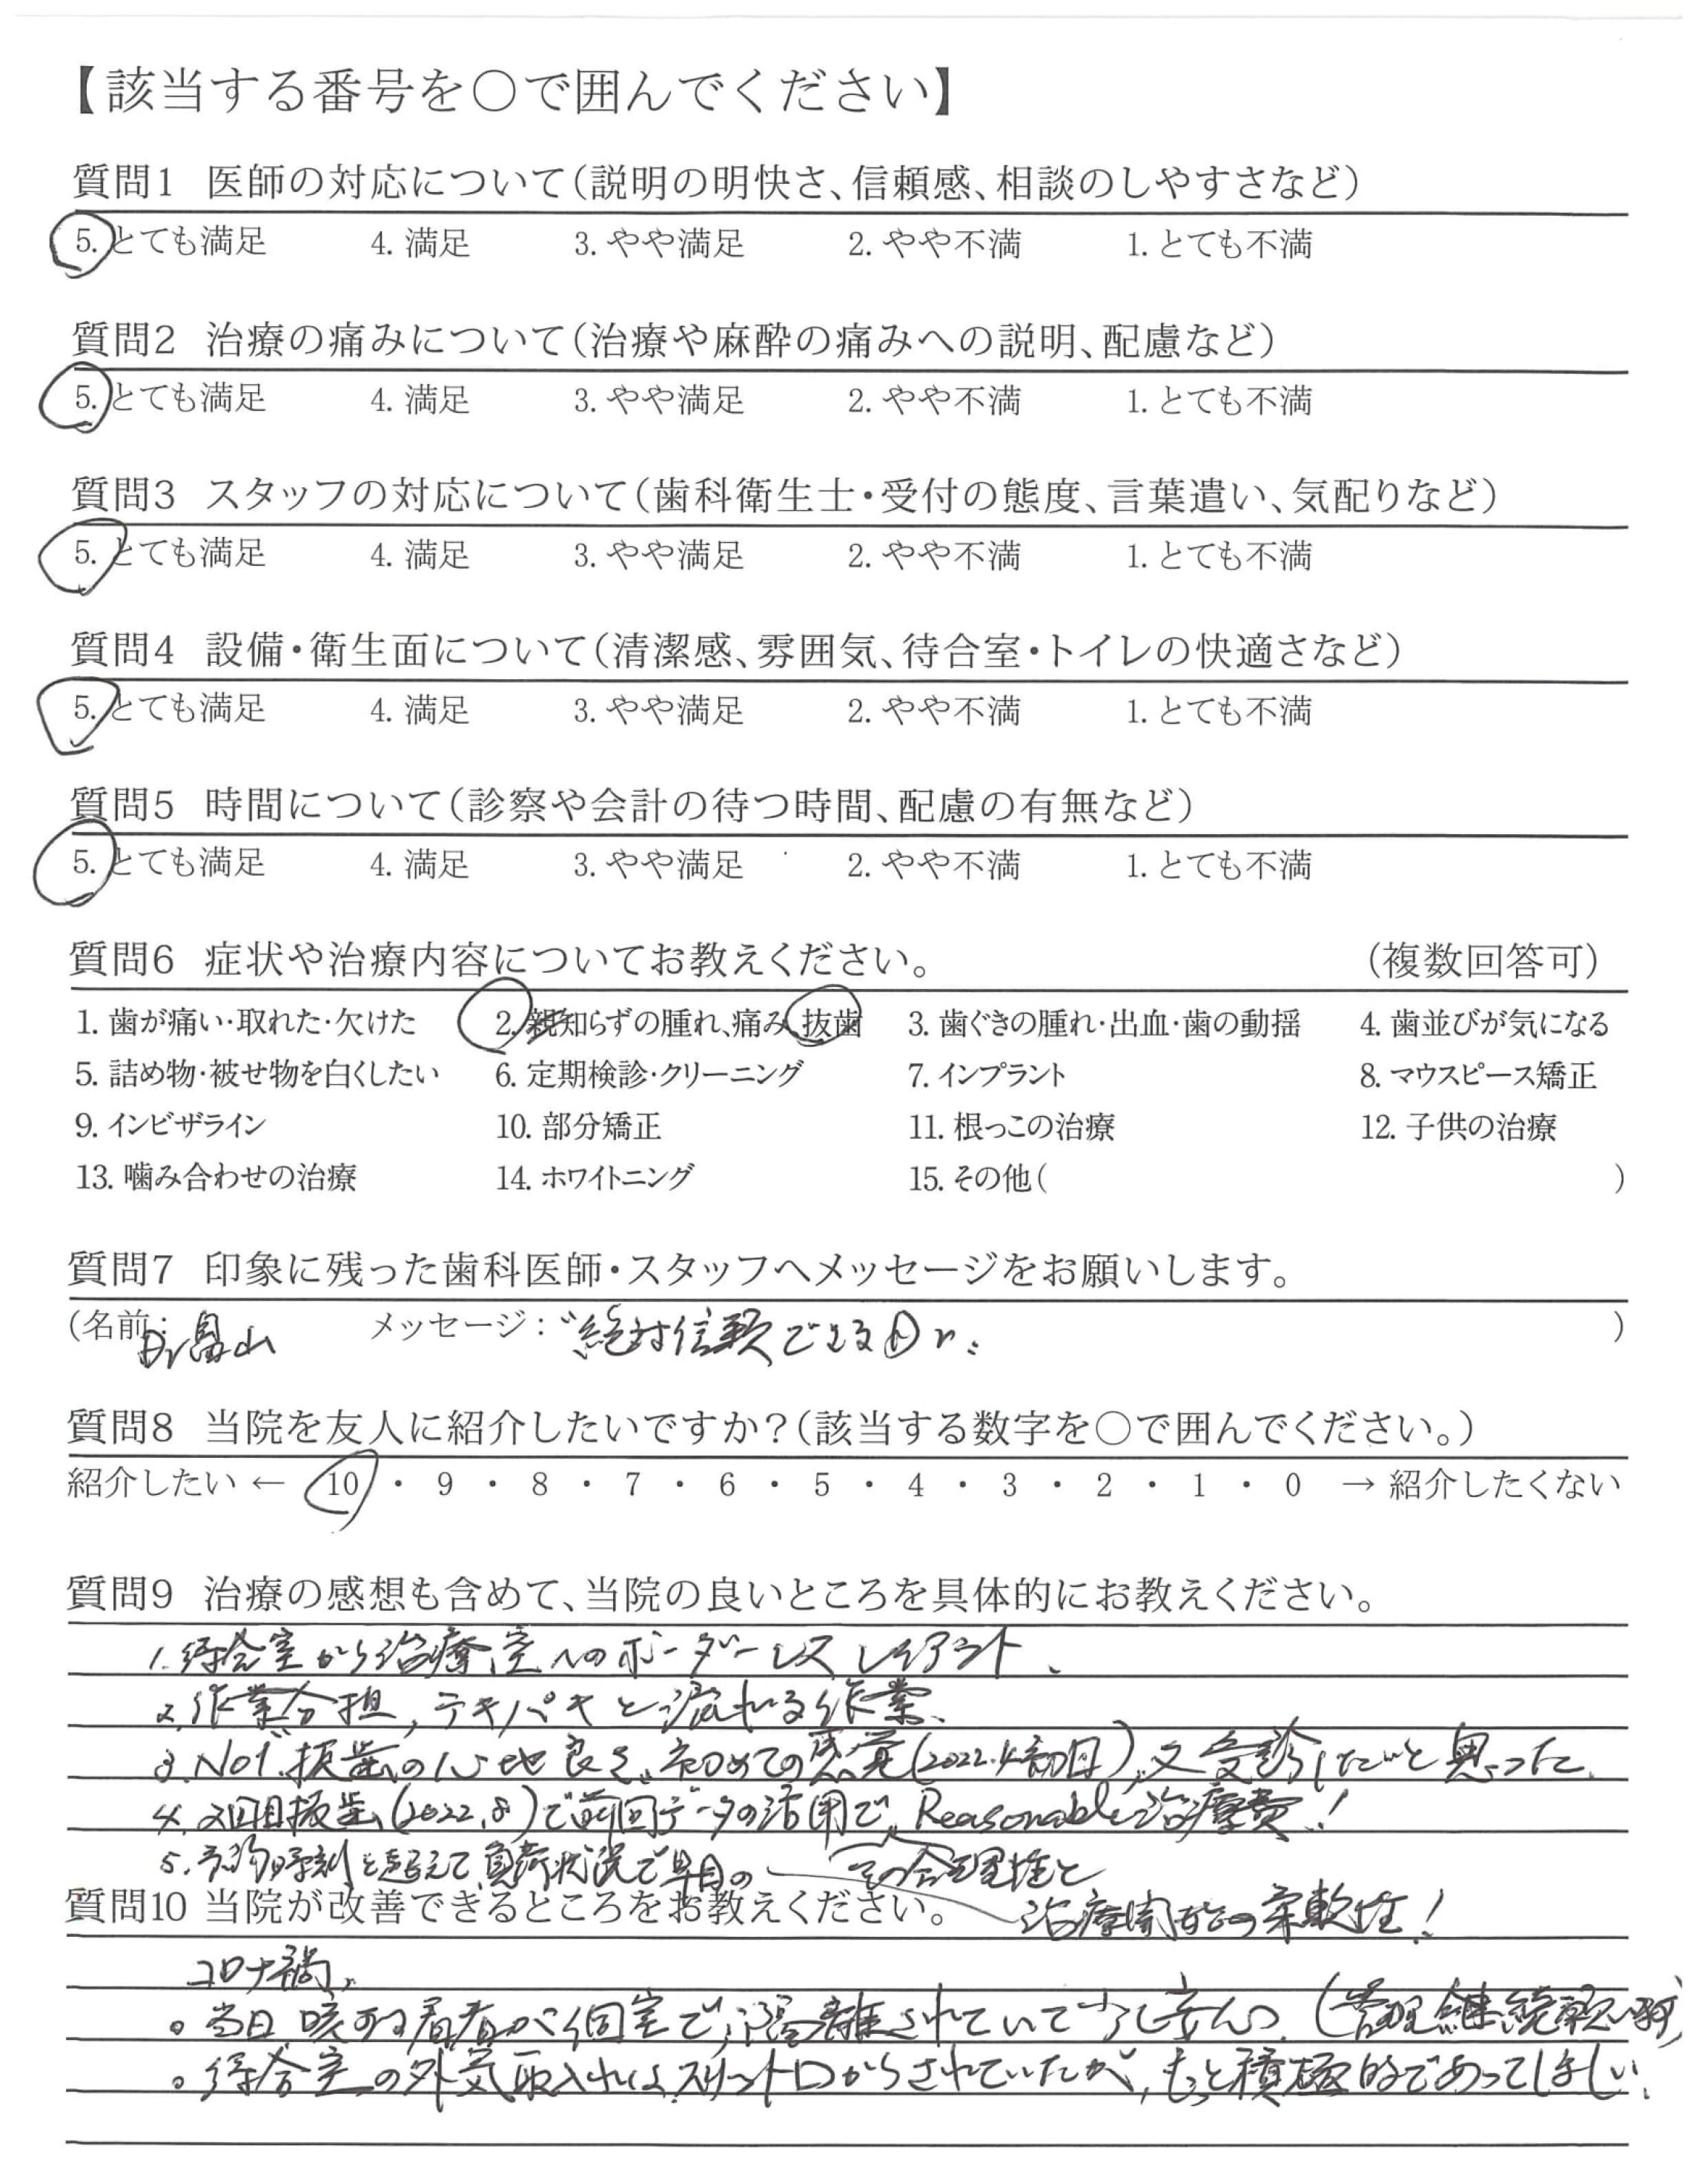 【該当する番号を○で囲んでください】
質問1 医師の対応について(説明の明快さ、信頼感、相談のしやすさなど)
5. とても満足 4. 満足 3. やや満足 2. やや不満 1. とても不満
質問2 治療の痛みについて(治療や麻酔の痛みへの説明、配慮など)
5. とても満足 4. 満足 3. やや満足 2. やや不満 1. とても不満
質問3 スタッフの対応について(歯科衛生士・受付の態度、言葉遣い、気配りなど)
5. とても満足 4. 満足 3. やや満足 2. やや不満 1. とても不満
質問4 設備・衛生面について(清潔感、雰囲気、待合室・トイレの快適さなど)
5. とても満足 4. 満足 3. やや満足 2. やや不満 1. とても不満
質問5 時間について(診察や会計の待つ時間、配慮の有無など)
5. とても満足 4. 満足 3. やや満足 2. やや不満 1. とても不満
質問6 症状や治療内容についてお教えください。 (複数回答可)
1. 歯が痛い・取れた・欠けた 2. 親知らずの腫れ、痛み、抜歯 3. 歯ぐきの腫れ・出血・歯の動揺 4. 歯並びが気になる
5. 詰め物・被せ物を白くしたい 6. 定期検診・クリーニング 7. インプラント 8. マウスピース矯正
9. インビザライン 10. 部分矯正 11. 根っこの治療 12. 子供の治療
13. 噛み合わせの治療 14. ホワイトニング 15. その他( )
質問7 印象に残った歯科医師・スタッフへメッセージをお願いします。
(名前: Dr畠山 メッセージ: "絶対信頼できるDr" )
質問8 当院を友人に紹介したいですか?(該当する数字を○で囲んでください。)
紹介したい ← 10 ・ 9 ・ 8 ・ 7 ・ 6 ・ 5 ・ 4 ・ 3 ・ 2 ・ 1 ・ 0 → 紹介したくない
質問9 治療の感想も含めて、当院の良いところを具体的にお教えください。
1. 待合室から治療室へのボーダーレスレイアウト、
2. 作業分担, テキパキと流れる作業、
3. No1 抜歯の心地良さ、初めての感覚(2022.4初日), 又受診したいと思った、
4. 2回目抜歯(2022.8)で前回データの活用で Reasonable治療費!
その合理性と
5. 予約時刻を超えて、負荷状況で早目の
治療開始の柔軟性!
質問10 当院が改善できるところをお教えください。
コロナ禍、
。当日咳する患者が個室で隔離されていて少し安心。(管理継続願い
。待合室の外気取入れはスリット口からされていたが, もっと積極的であってほしい、